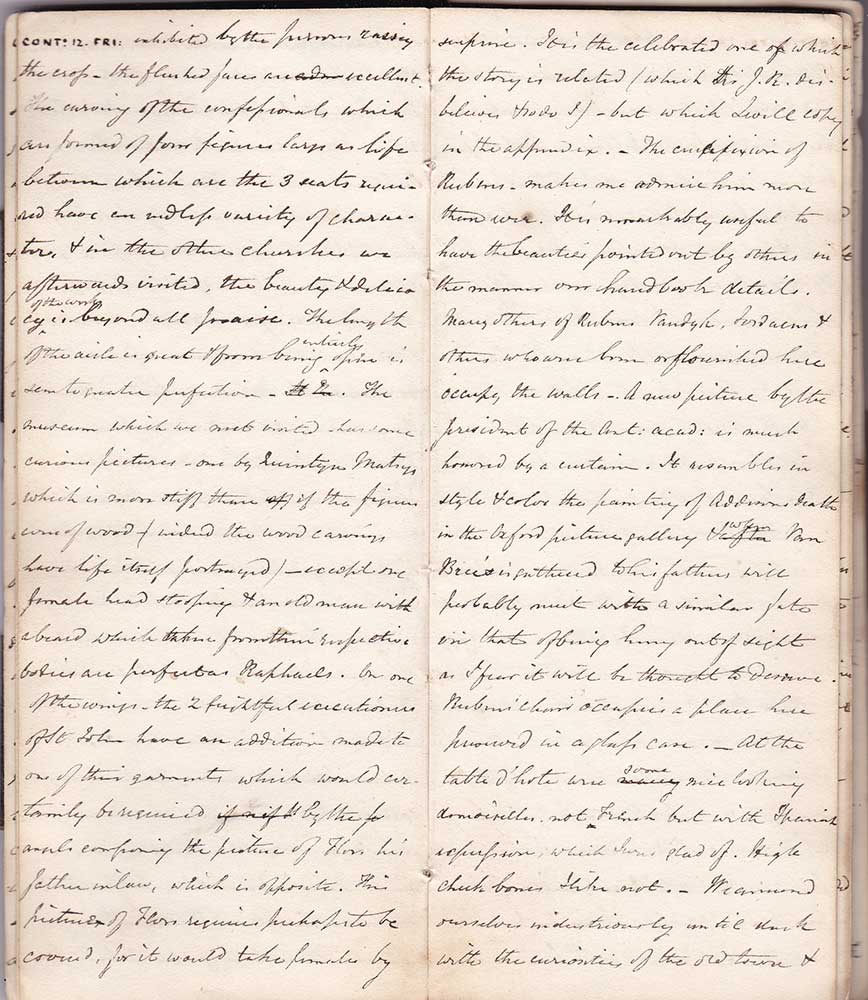 CONT: 12. FRI: exhibited by the persons raising
the cross - the flushed faces are adm excellent.
The carving of the confessionals which
are formed of four figures large as life
between which are the 3 seats requi-
red have an endless variety of charac-
ters, & in the other churches we
afterwards visited, the beauty & delica
of the work
cy is beyond all praise. The length
entirely
of the aisle is great & from being open is
seen to greater perfection - The
museum which we next visited has some
curious pictures - one by Quintyn Matsys
which is more stiff than if the figures
were of wood (indeed the wood carvings
have life itself portrayed) - except one
female head stooping & an old man with
a beard which taken from their respective
bodies are perfect as Raphaels. On one
of the wings - the 2 frightful executioners
of St John have an addition made to
one of their garments which would cer-
tainly be required if by the
angels composing the picture of Flors his
father in law, which is opposite. This
picture of Flors requires perhaps to be
covered, for it would take females by
surprise. It is the celebrated one of which
the story is related (which Sir J. R. dis-
believes & so do I) - but which I will copy
in the appendix. - The crucifixion of
Rubens - makes me admire him more
than ever. It is remarkably useful to
have the beauties pointed out by others in
the manner our handbook details.
Many others of Rubens Vandyk, Jordaens &
others who were born or flourished here
occupy the walls - A new picture by the
president of the Ant: acad: is much
honored by a curtain. It resembles in
style & color the painting of Addisons death
when
in the Oxford picture gallery & after Van
Bree's is gathered to his fathers will
probably meet with a similar fate
viz that of being hung out of sight
as I fear it will be thought to deserve.
Rubens' chair occupies a place here
preserved in a glass case. - At the
some
table d'hote were many nice looking
demoiselles. not French but with Spanish
expression, which I was glad of. High
cheek bones I like not. - We amused
ourselves industriously until dusk
with the curiosities of the old town &